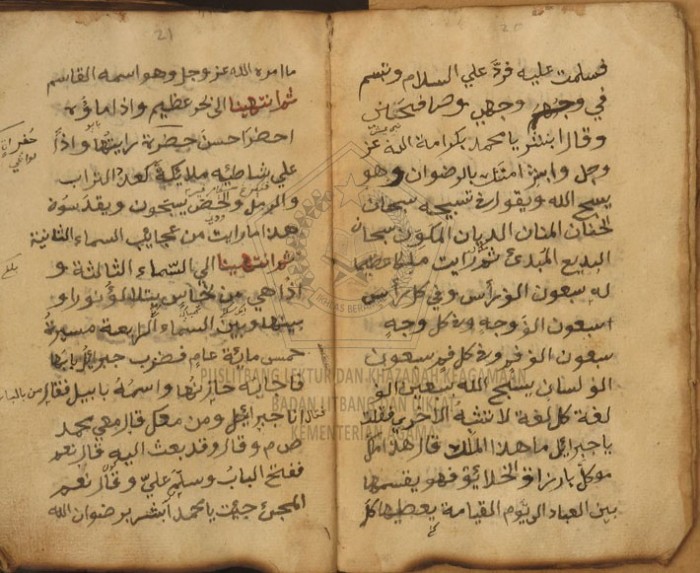 فسلمت عليه فردّ علي السلام وتبسم
في وجهي
وقال ابشر يا محمد بكرامة الله عز
وجل وابشر امتك بالرضوان وهو
يسبح الله ويقول في تسبيحه سبحان
الحنان المنان الديان المكون سبحان
البديع المبدئ ثم رايت ملكا
له سبعون الف رأس وفي كل رأس
سبعون الف وجه وفي كل وجه
سبعون الف فم وفي كل فم سبعون
الف لسان يسبح الله سبعين الف
لغة كل لغة لا تشبه الأخرى فقلت
يا جبرائيل ما هذا الملك قال هذا ملك
موكل بارزاق الخلائق فهو يقسمها
بين العباد الى يوم القيامة يعطيها كل
21
ما امره الله عز وجل وهو اسمه القاسم
ثم انتهينا الى نحر عظيم واذا ماؤه
احضر احسن حضرة رايتها واذا
علي شاطئيه ملائكة كعدد التراب
والرمل والحض يسبحون ويقدسونه
هذا ما رايت من عجايب السماء الثانية
ثم انتهينا الي السماء الثالثة و
اذا هي من نحاس يتلالؤ نورا و
بينها وبين السماء الرابعة مسيرة
خمس مائة عام فضرب جبرائيل بابها
فاجابه خازنها واسمه بابيل فقال من بالباب
فقال انا جبرائيل ومن معك قال معي محمد
ص م وقال وقد بعث اليه قال نعم
ففتح الباب وسلم علي وقال نعم
المجئ جيت يا محمد ابشر برضوان الله
بلغ
PUSLITBANG LEKTUR DAN KHAZANAH KEAGAMAAN
BADAN LITBANG DAN DIKLAT
KEMENTERIAN AGAMA